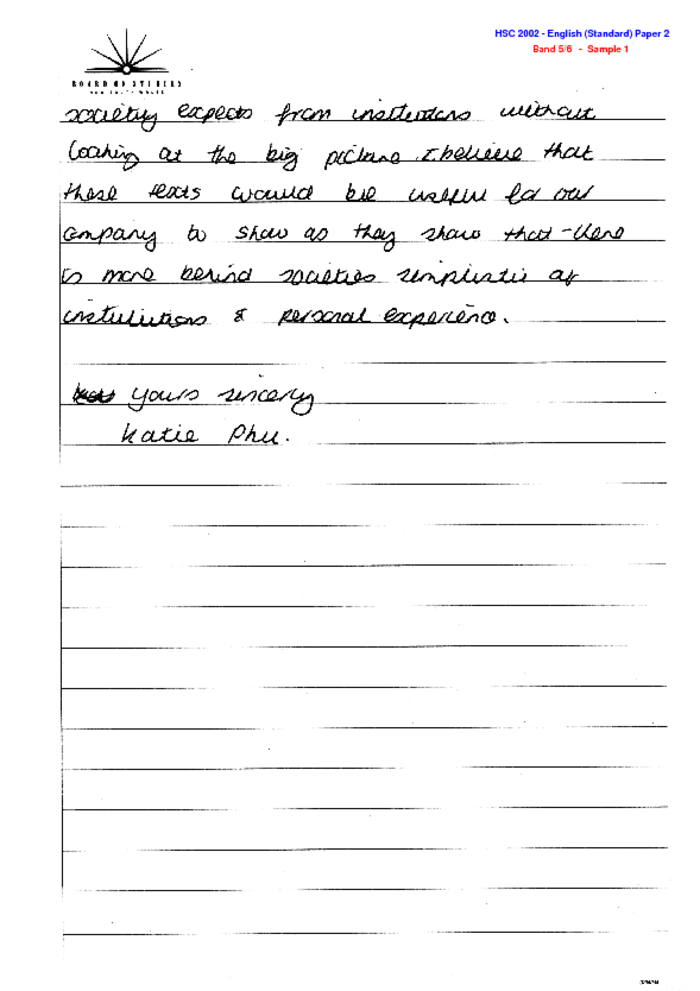 HSC 2002 - English (Standard) Paper 2
Band 5/6 - Sample 1
BOARD OF STUDIES
NEW SOUTH WALES
society expects from institutions without
looking at the big picture. I believe that
these texts would be useful for our
company to show as they show that there
is more behind societies simplistic of
instituiutions & personal experience.
yours sincerly
Katie Phu.